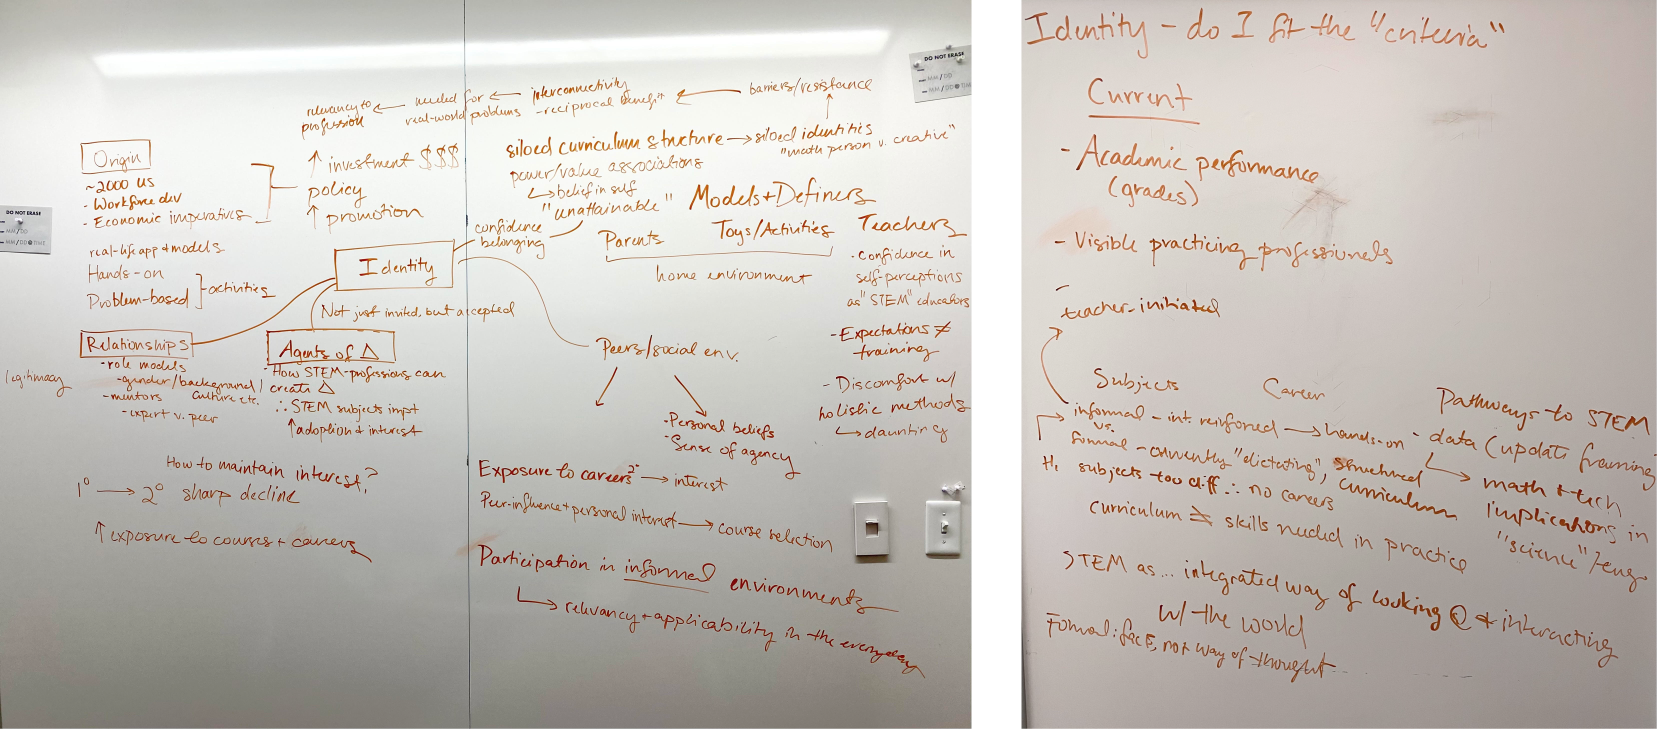 DO NOT ERASE
MM / DD
MM / DD TIME
relevancy to profession
needed for real-world problems
interconnectivity
- reciprocal benefit
barriers/resistance
DO NOT ERASE
MM / DD
MM / DD TIME
Origin
~2000 US
- Workforce dev
- Economic imperatives
↑ investment $$$
policy
↑ promotion
siloed curriculum structure → siloed identities
"math person v. creative"
power/value associations
↳ belief in self
"unattainable"
Models + Definers
Parents
Toys/Activities
Teachers
home environment
confidence
belonging
real-life app + models
Hands-on
Problem-based
activities
Identity
Not just invited, but accepted
· confidence in
self-perceptions
as "STEM" educators
- Expectations ≠
training
- Discomfort w/
holistic methods
↳ daunting
Relationships
- role models
- gender/background/
culture etc.
- mentors
- expert v. peer
legitimacy
Agents of Δ
· How STEM-professions can
create Δ
∴ STEM subjects impt
↑ adoption + interest
Peers/social env.
· Personal beliefs
· Sense of agency
How to maintain interest?
1° → 2° sharp decline
↑ exposure to courses + careers
Exposure to careers 2° → interest
Peer-influence + personal interest → course selection
Participation in informal environments
↳ relevancy + applicability in the everyday
Identity - do I fit the "criteria"
Current
- Academic performance
(grades)
- Visible practicing professionals
-
teacher-initiated
Subjects
Career
Pathways to STEM
informal - int. reinforced → hands-on
vs.
formal - currently "dictating", structured
curriculum
H. subjects too diff ∴ no careers
curriculum ≠ skills needed in practice
- data (update framing
↳ math + tech
implications in
"science"/eng.
STEM as... integrated way of looking @ + interacting
w/ the world
Formal: , not way of thought